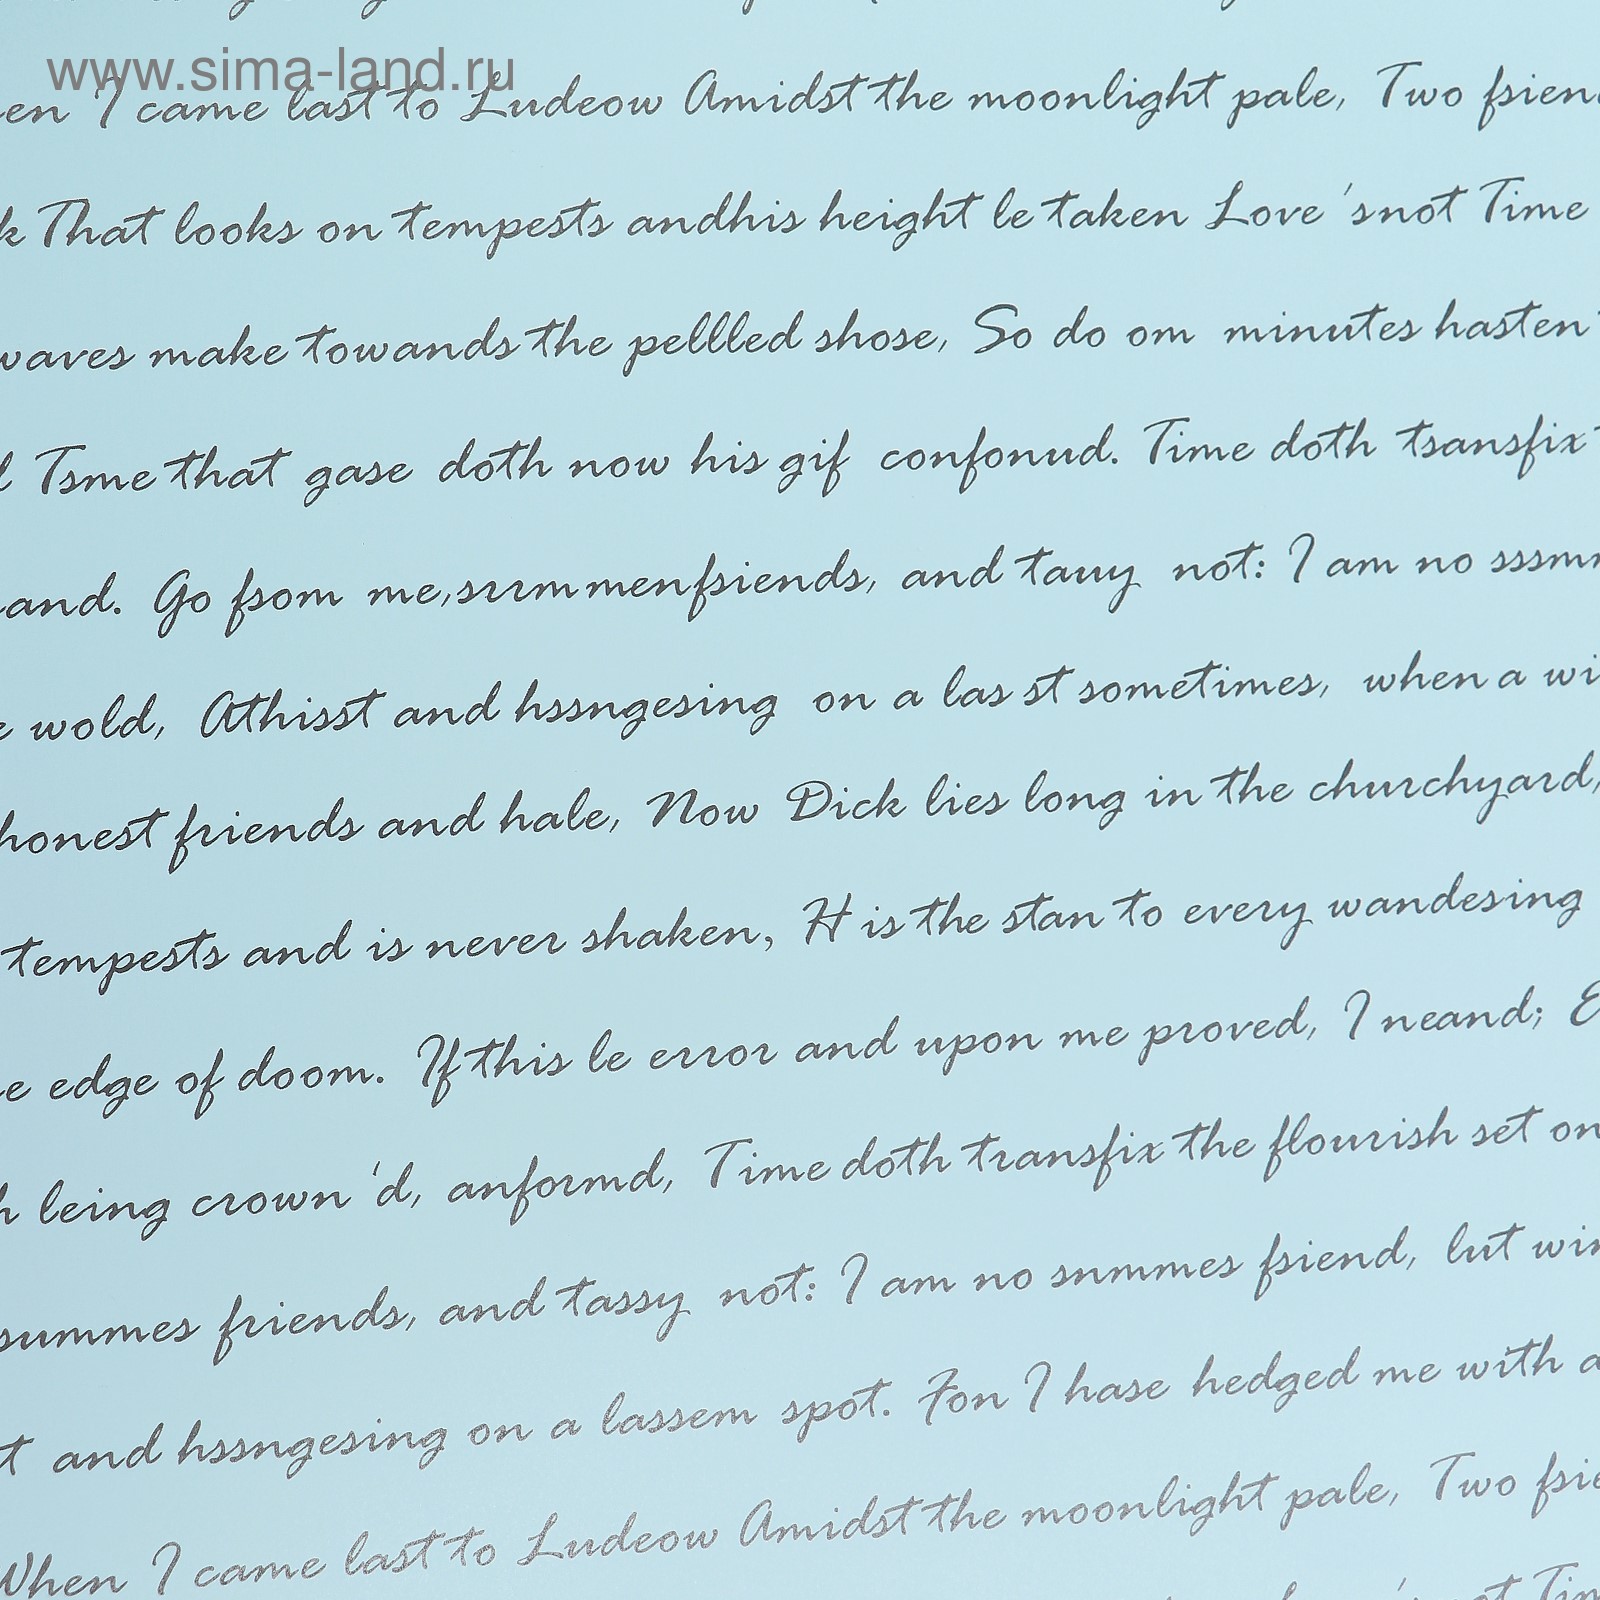 www.sima-land.ru
en I came last to Ludeow Amidst the moonlight pale, Two fsien
k That looks on tempests andhis height le taken Love 'snot Time
waves make towands the pellled shose, So do om minutes hasten
Tsme that gase doth now his gif confonud. Time doth tsansfix
and. Go fsom me,srrmmenfsiends, and tauy not: I am no sssm
e wold, Athisst and hssngesing on a las st sometimes, when a wi
honest friends and hale, Now Dick lies long in the churchyard,
tempests and is never shaken, H is the stan to every wandesing
e edge of doom. If this le error and upon me proved, I neand; E
h leing crown 'd, anformd, Time doth transfix the flourish set on
summes friends, and tassy not: I am no snmmes fsiend, lut win
t and hssngesing on a lassem spot. Fon I hase hedged me with a
When I came last to Ludeow Amidst the moonlight pale, Two fsie
not Tim